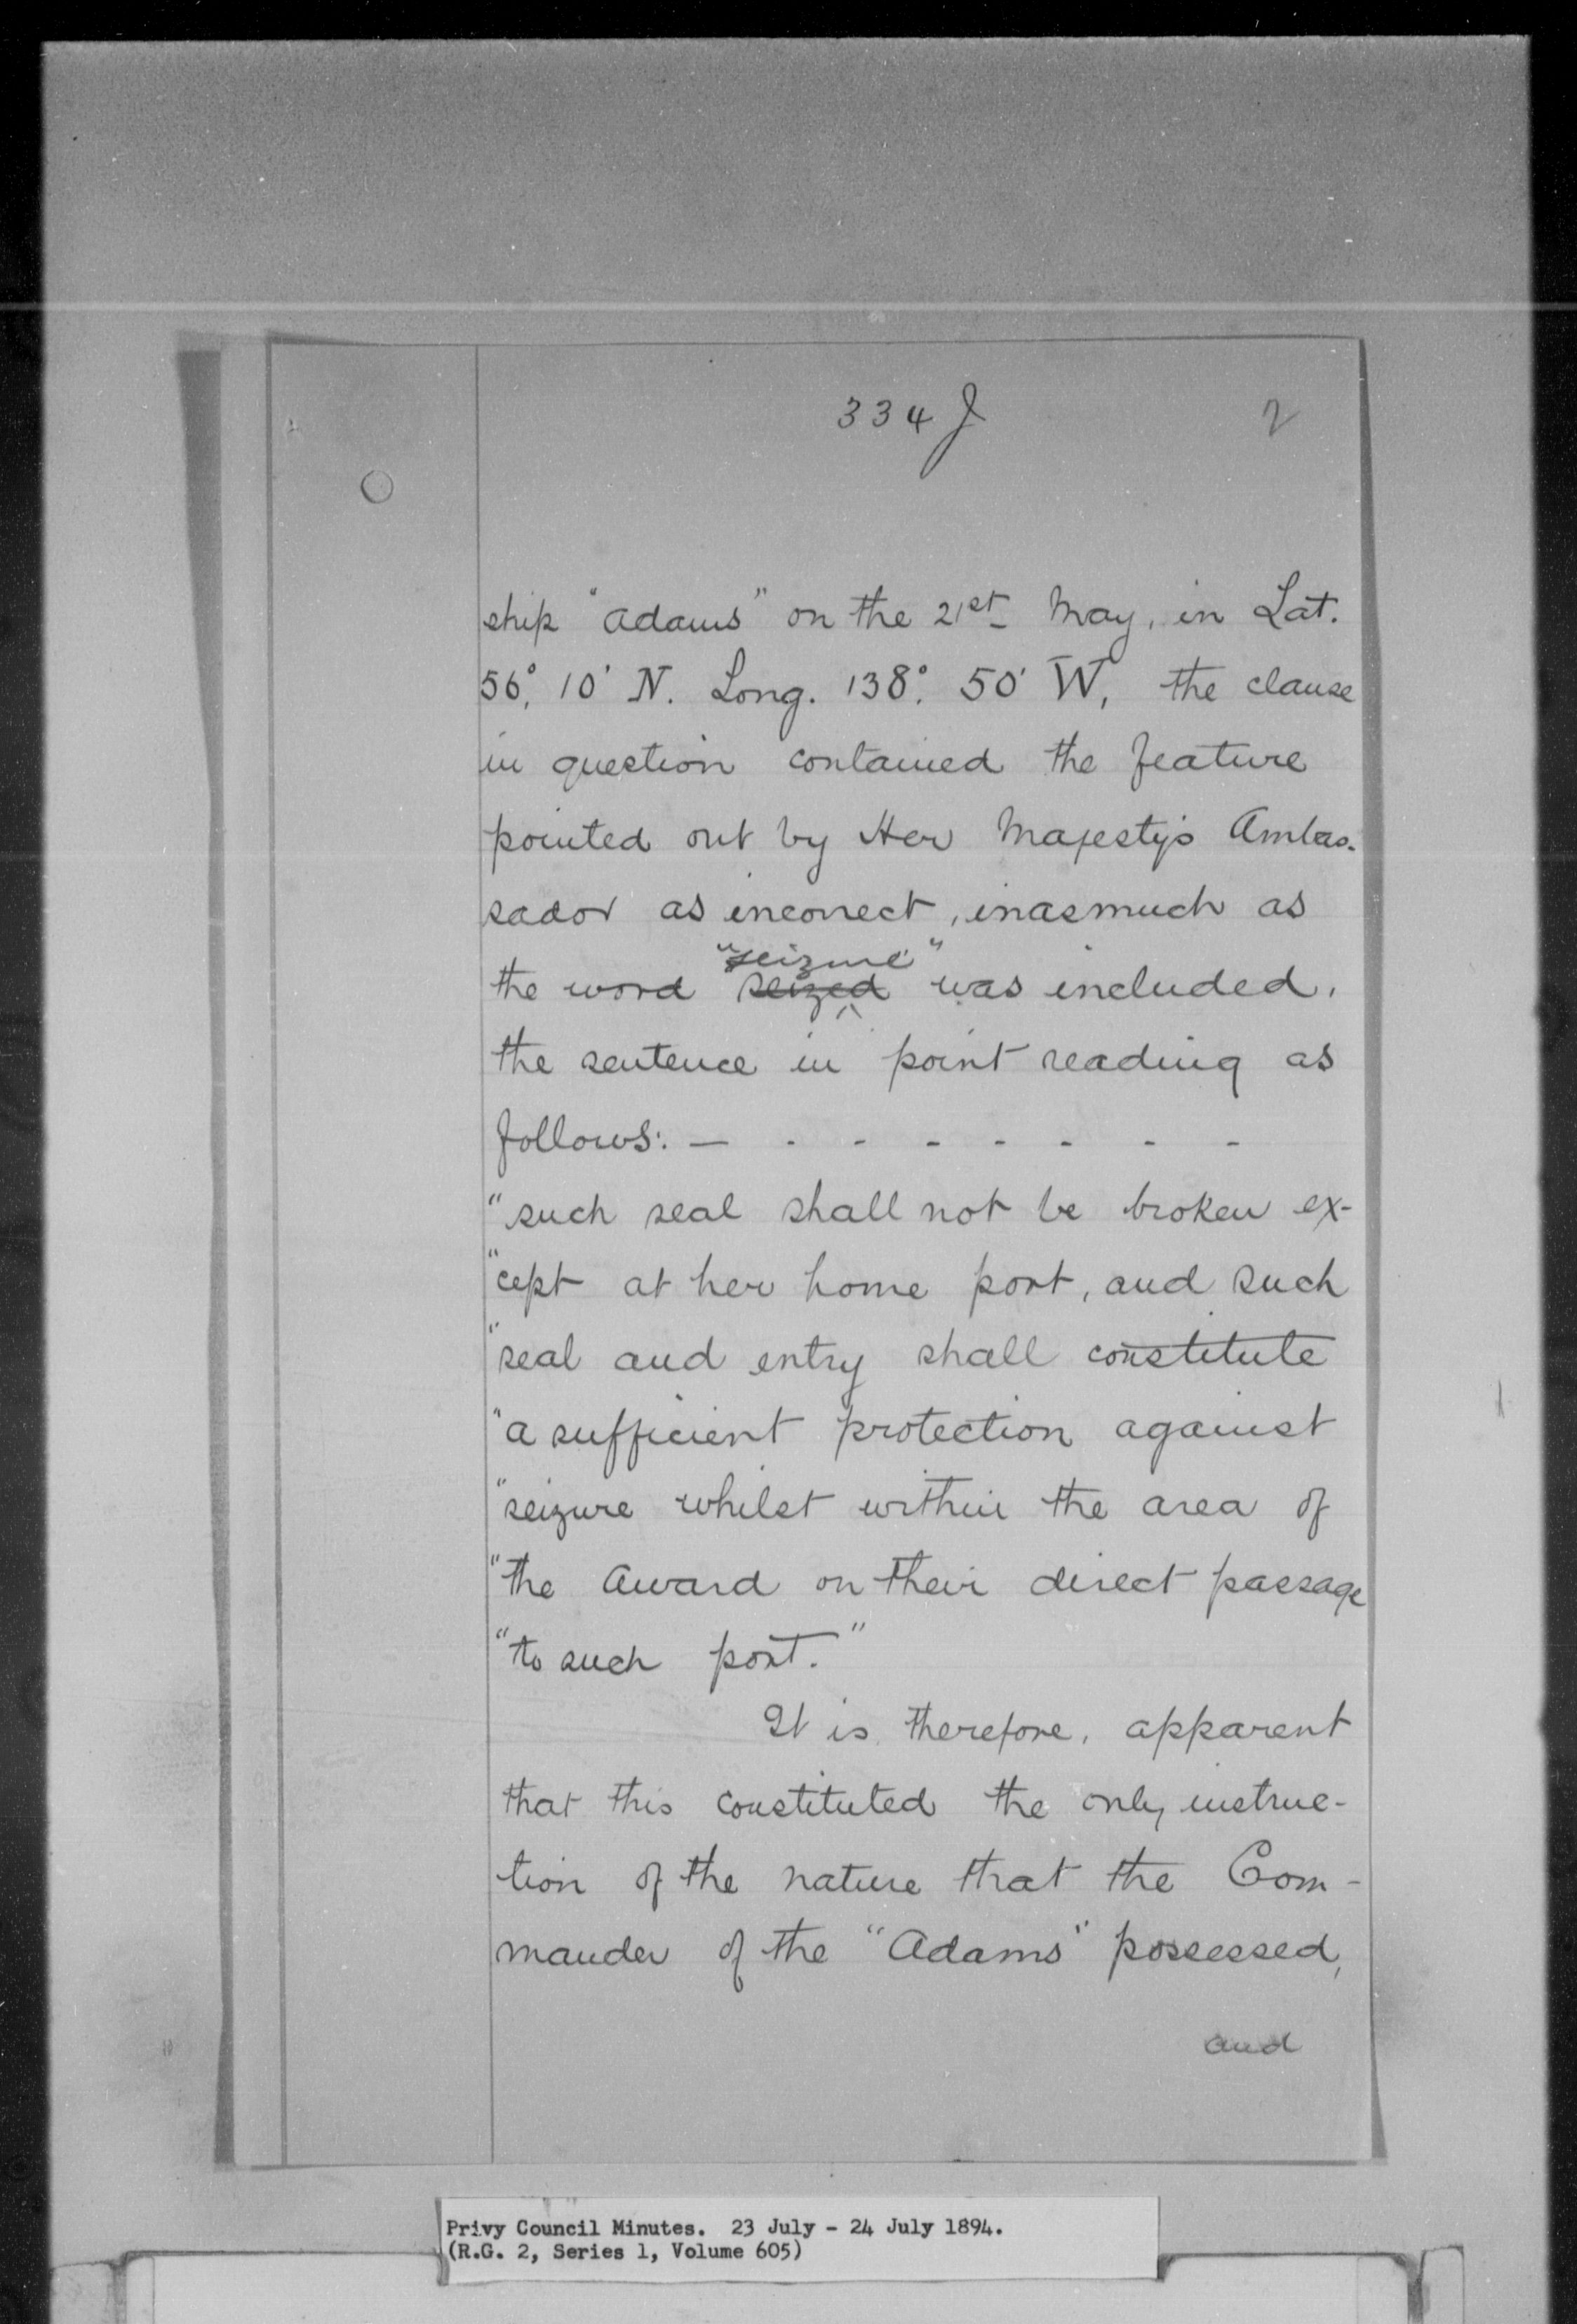 334 J 2
ship "Adams" on the 21st May, in Lat.
56°, 10' N. Long. 138°. 50' W, the clause
in question contained the feature
pointed out by Her Majesty's Ambas-
sador as incorrect, inasmuch as
"seizure"
the word seized was included,
the sentence in point reading as
follows: — - - - - - - -
"such seal shall not be broken ex-
"cept at her home port, and such
"seal and entry shall constitute
"a sufficient protection against
"seizure whilst within the area of
"the Award on their direct passage
"to such port."
It is, therefore, apparent
that this constituted the only instruc-
tion of the nature that the Com-
mander of the "Adams" possessed,
and
Privy Council Minutes. 23 July - 24 July 1894.
(R.G. 2, Series 1, Volume 605)